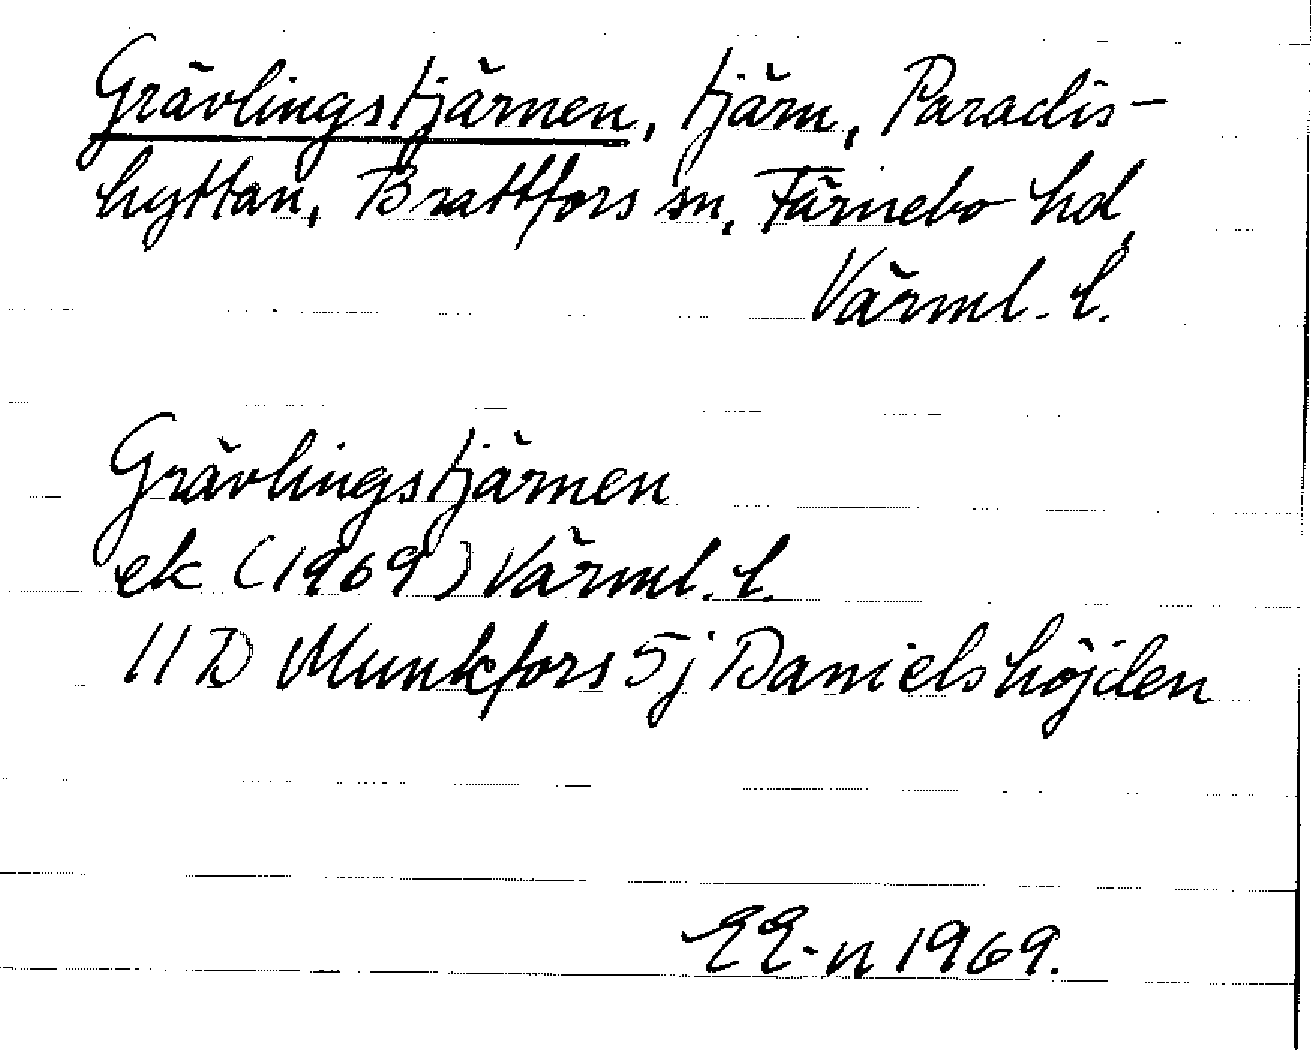 Grävlingstjärnen, tjärn, Paradis-
hyttan, Brattfors sn, Färnebo hd,
Värml. l.
Grävlingstjärnen
ek (1969) Värml. l.
11 D Munkfors 5j Danielshöjden
EE-n 1969.